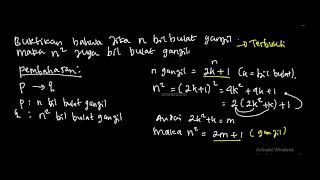 Buktikan bahwa jika n bil bulat ganjil
maka n² juga bil bulat ganjil
∴ Terbukti
pembahasan:
p → q
p : n bil bulat ganjil
q : n² bil bulat ganjil
n ganjil = 2k+1 (k = bil bulat)
n² = (2k+1)² = 4k² + 4k + 1
= 2(2k²+2k)+1
Andai 2k²+2k = m
Maka n² = 2m+1 (ganjil)
Activate Windows